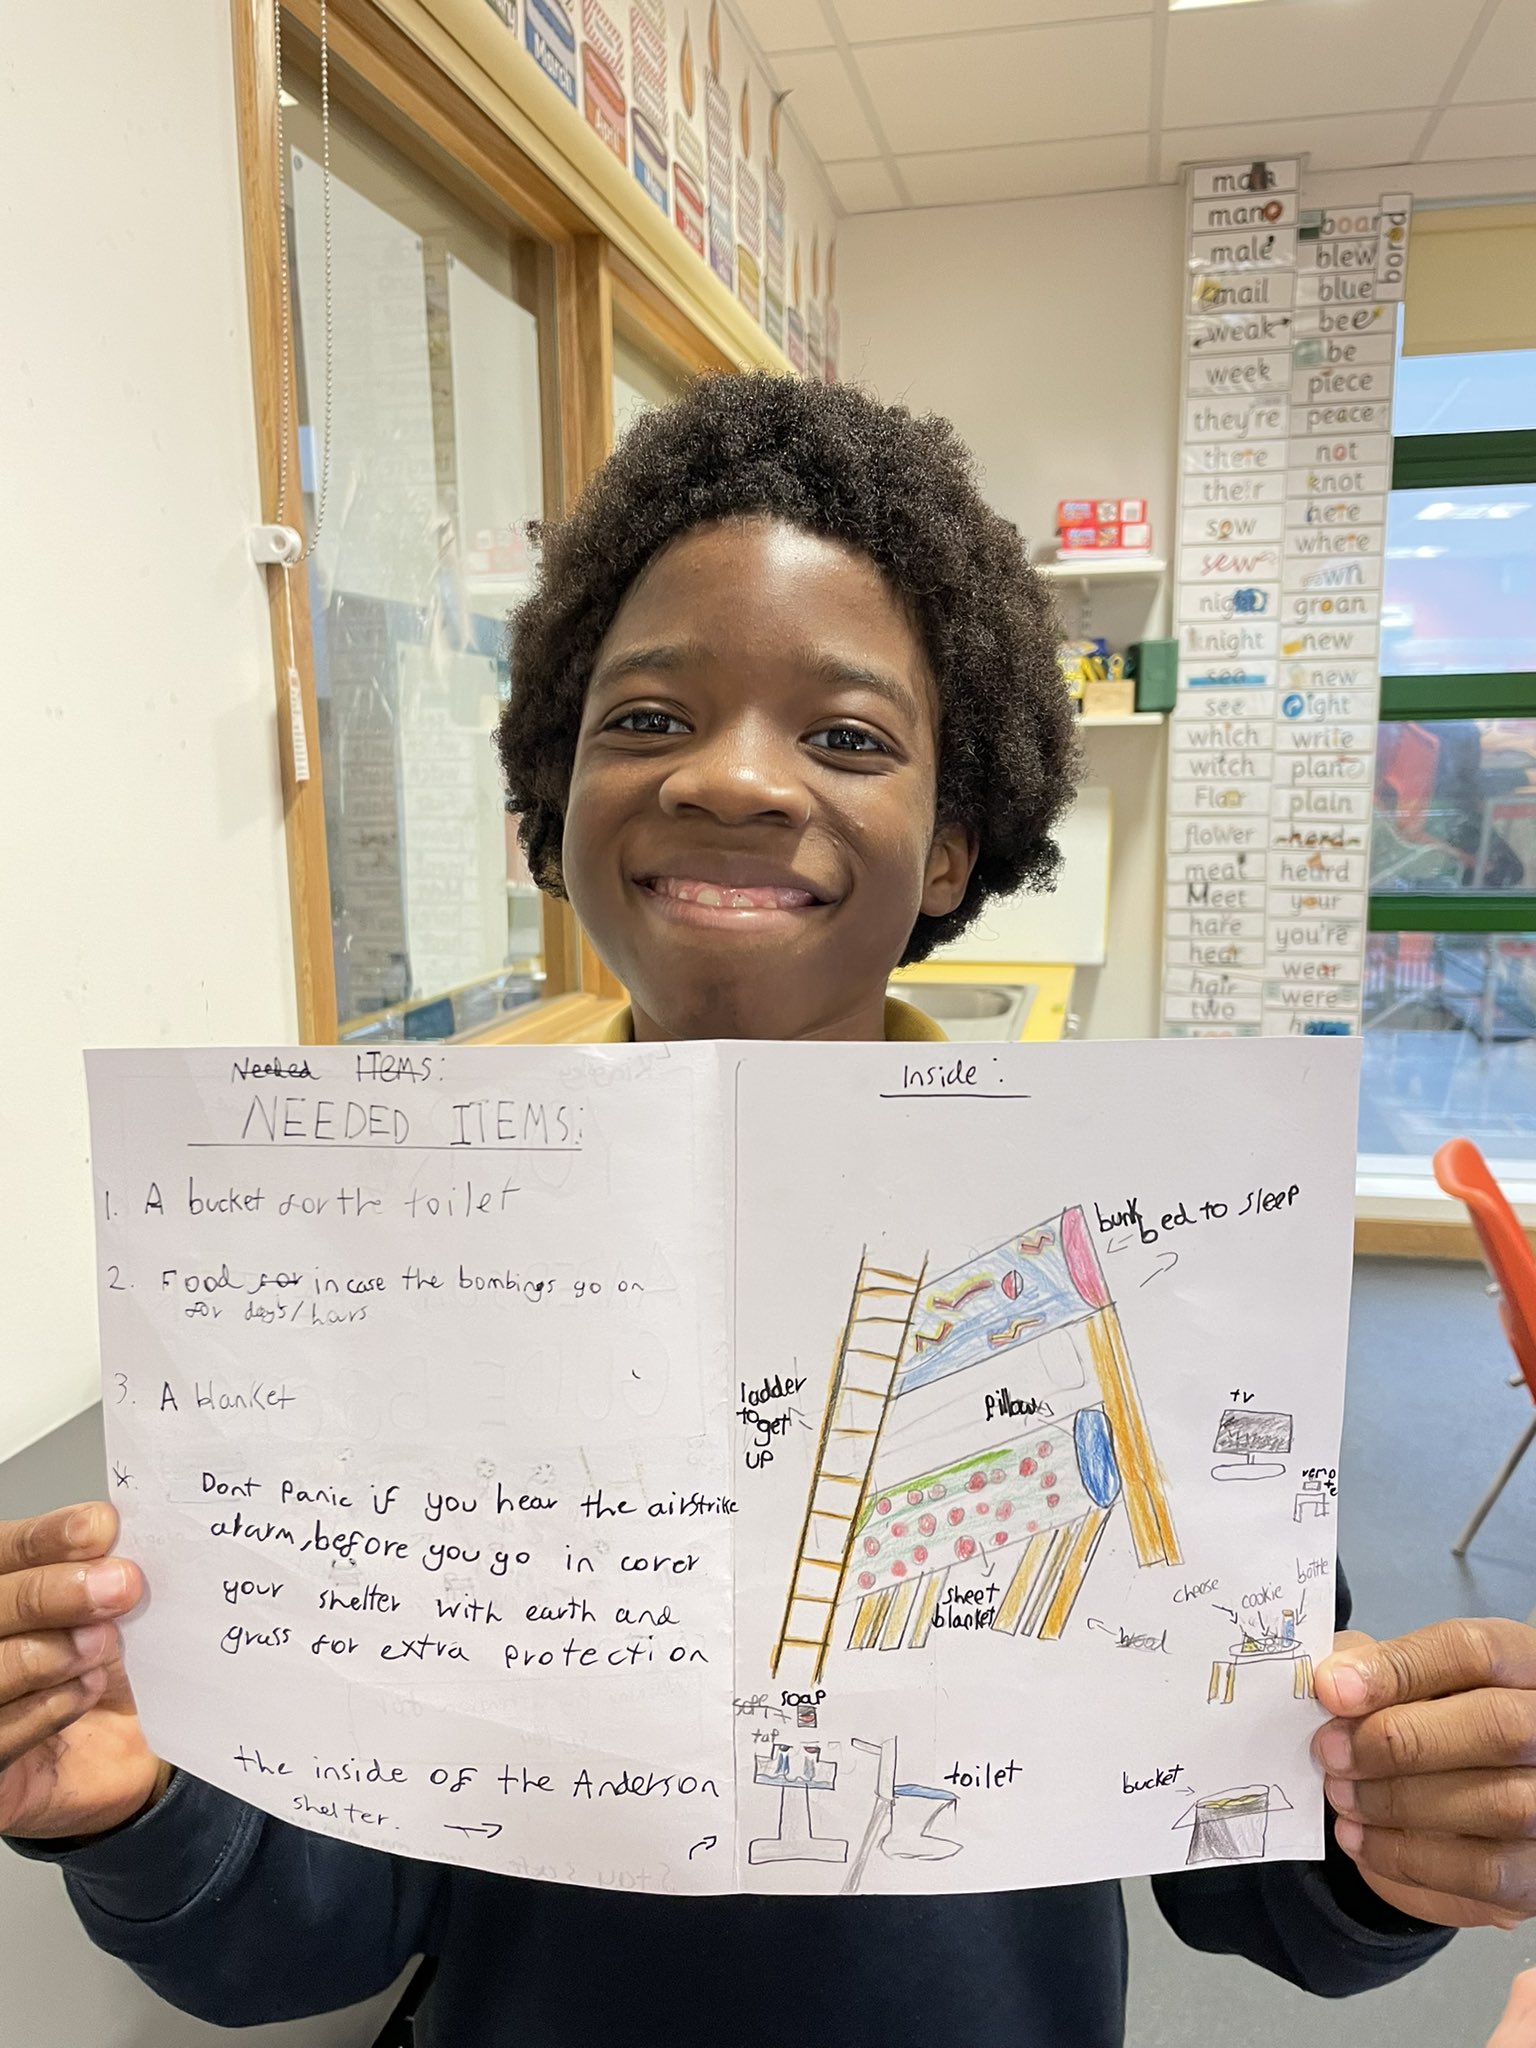 March
April
May
June
Needed ITEMS:
NEEDED ITEMS:
1. A bucket for the toilet
2. Food for in case the bombings go on
for days/hours
3. A blanket
Dont panic if you hear the airstrike
alarm, before you go in cover
your shelter with earth and
grass for extra protection
the inside of the Anderson
shelter.
Inside:
bunk bed to sleep
ladder
to get
up
pillow
sheet
blanket
wood
tv
remo
te
cheese
cookie
bottle
soap
tap
toilet
bucket
main
mane
male
mail
weak
week
they're
there
their
sow
sew
night
knight
sea
see
which
witch
flower
meat
Meet
hare
hear
hair
two
boar
bored
blew
blue
bee
be
piece
peace
not
knot
here
where
groan
new
new
right
write
plane
plain
herd
heard
your
you're
wear
were